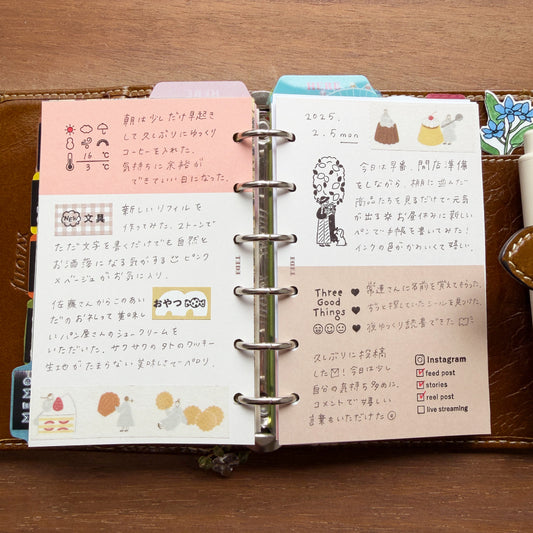 朝は少しだけ早起き
して久しぶりにゆっくり
コーヒーを入れた。
気持ちに余裕が
できていい日になった。
16 ℃
3 ℃
New 文具
新しいリフィルを
作ってみた。2トーンで
ただ文字を書くだけでも自然と
お洒落になる気がする ピンク
×ベージュがお気に入り。
佐藤さんからこのあい
だのお礼って美味し
いパン屋さんのシュークリームを
いただいた。サクサクの外のクッキー
生地がたまらない美味しさでペロリ。
おやつ
MEMO
2025.
2.5 mon
今日は早番。開店準備
をしながら、棚に並んだ
商品たちを見るだけで元気
が出る お昼休みに新しい
ペンで手帳を書いてみた!
インクの色がかわいくて嬉しい。
Three
Good
Things
常連さんに名前を覚えてもらった。
ずっと探していたシールを見つけた。
夜ゆっくり読書できた
久しぶりに投稿
した! 今日は少し
自分の気持ち多めに。
コメントで嬉しい
言葉もいただけた
Instagram
feed post
stories
reel post
live streaming